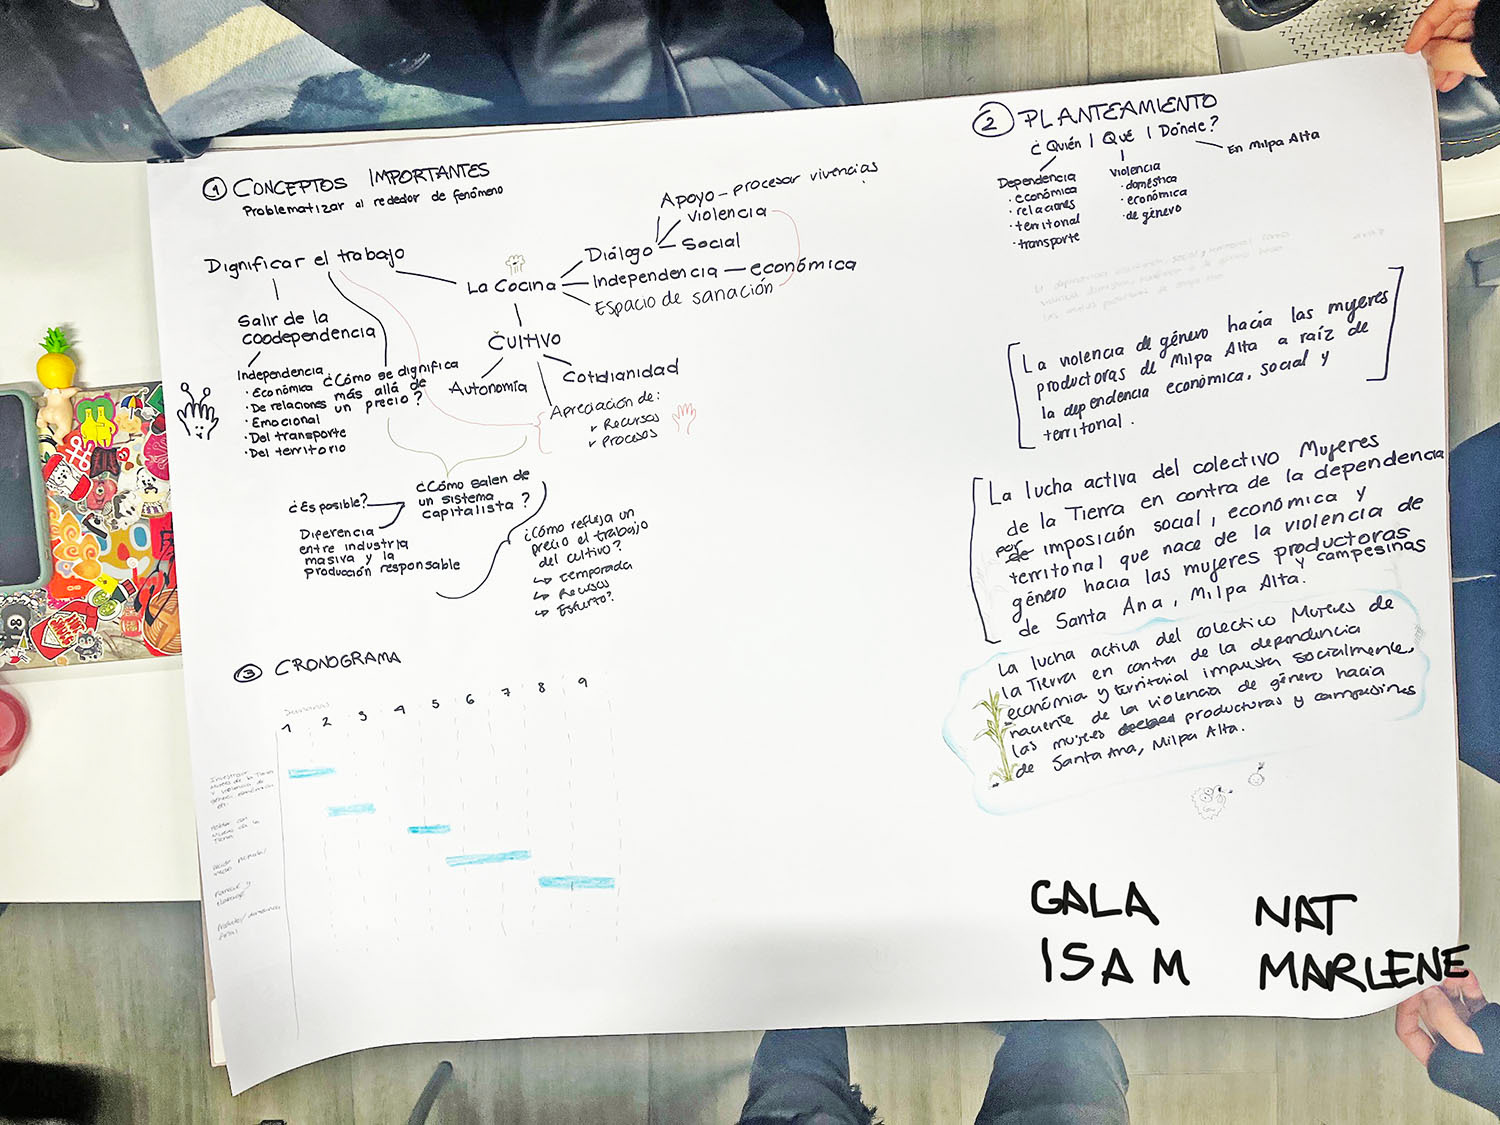 1 CONCEPTOS IMPORTANTES
Problematizar al rededor de fenómeno
Dignificar el trabajo
Salir de la
coodependencia
Independencia
· Económica
· De relaciones
· Emocional
· Del transporte
· Del territorio
¿Cómo se dignifica
más allá de
un precio?
La Cocina
Diálogo
Apoyo - procesar vivencias
Violencia
Social
Independencia — económica
Espacio de sanación
CULTIVO
Autonomía
Cotidianidad
Apreciación de:
Recursos
Procesos
¿Cómo salen de
un sistema
capitalista?
¿Es posible?
Diferencia
entre industria
masiva y la
producción responsable
¿Cómo refleja un
precio el trabajo
del cultivo?
↳ temporada
↳ Recursos
↳ Esfuerzo?
2 PLANTEAMIENTO
¿Quién | Qué | Dónde?
Dependencia
· económica
· relaciones
· territorial
· transporte
Violencia
· doméstica
· económica
· de género
En Milpa Alta
La violencia de género hacia las mujeres
productoras de Milpa Alta a raíz de
la dependencia económica, social y
territorial.
La lucha activa del colectivo Mujeres
de la Tierra en contra de la dependencia
por
de imposición social, económica y
territorial que nace de la violencia de
género hacia las mujeres productoras
y campesinas
de Santa Ana, Milpa Alta.
La lucha activa del colectico Mujeres de
la Tierra en contra de la dependencia
económia y territorial impuesta socialmente,
naciente de la violencia de género hacia
las mujeres productoras y campesinas
de Santa Ana, Milpa Alta.
3 CRONOGRAMA
Semanas
1 2 3 4 5 6 7 8 9
GALA NAT
ISAM MARLENE